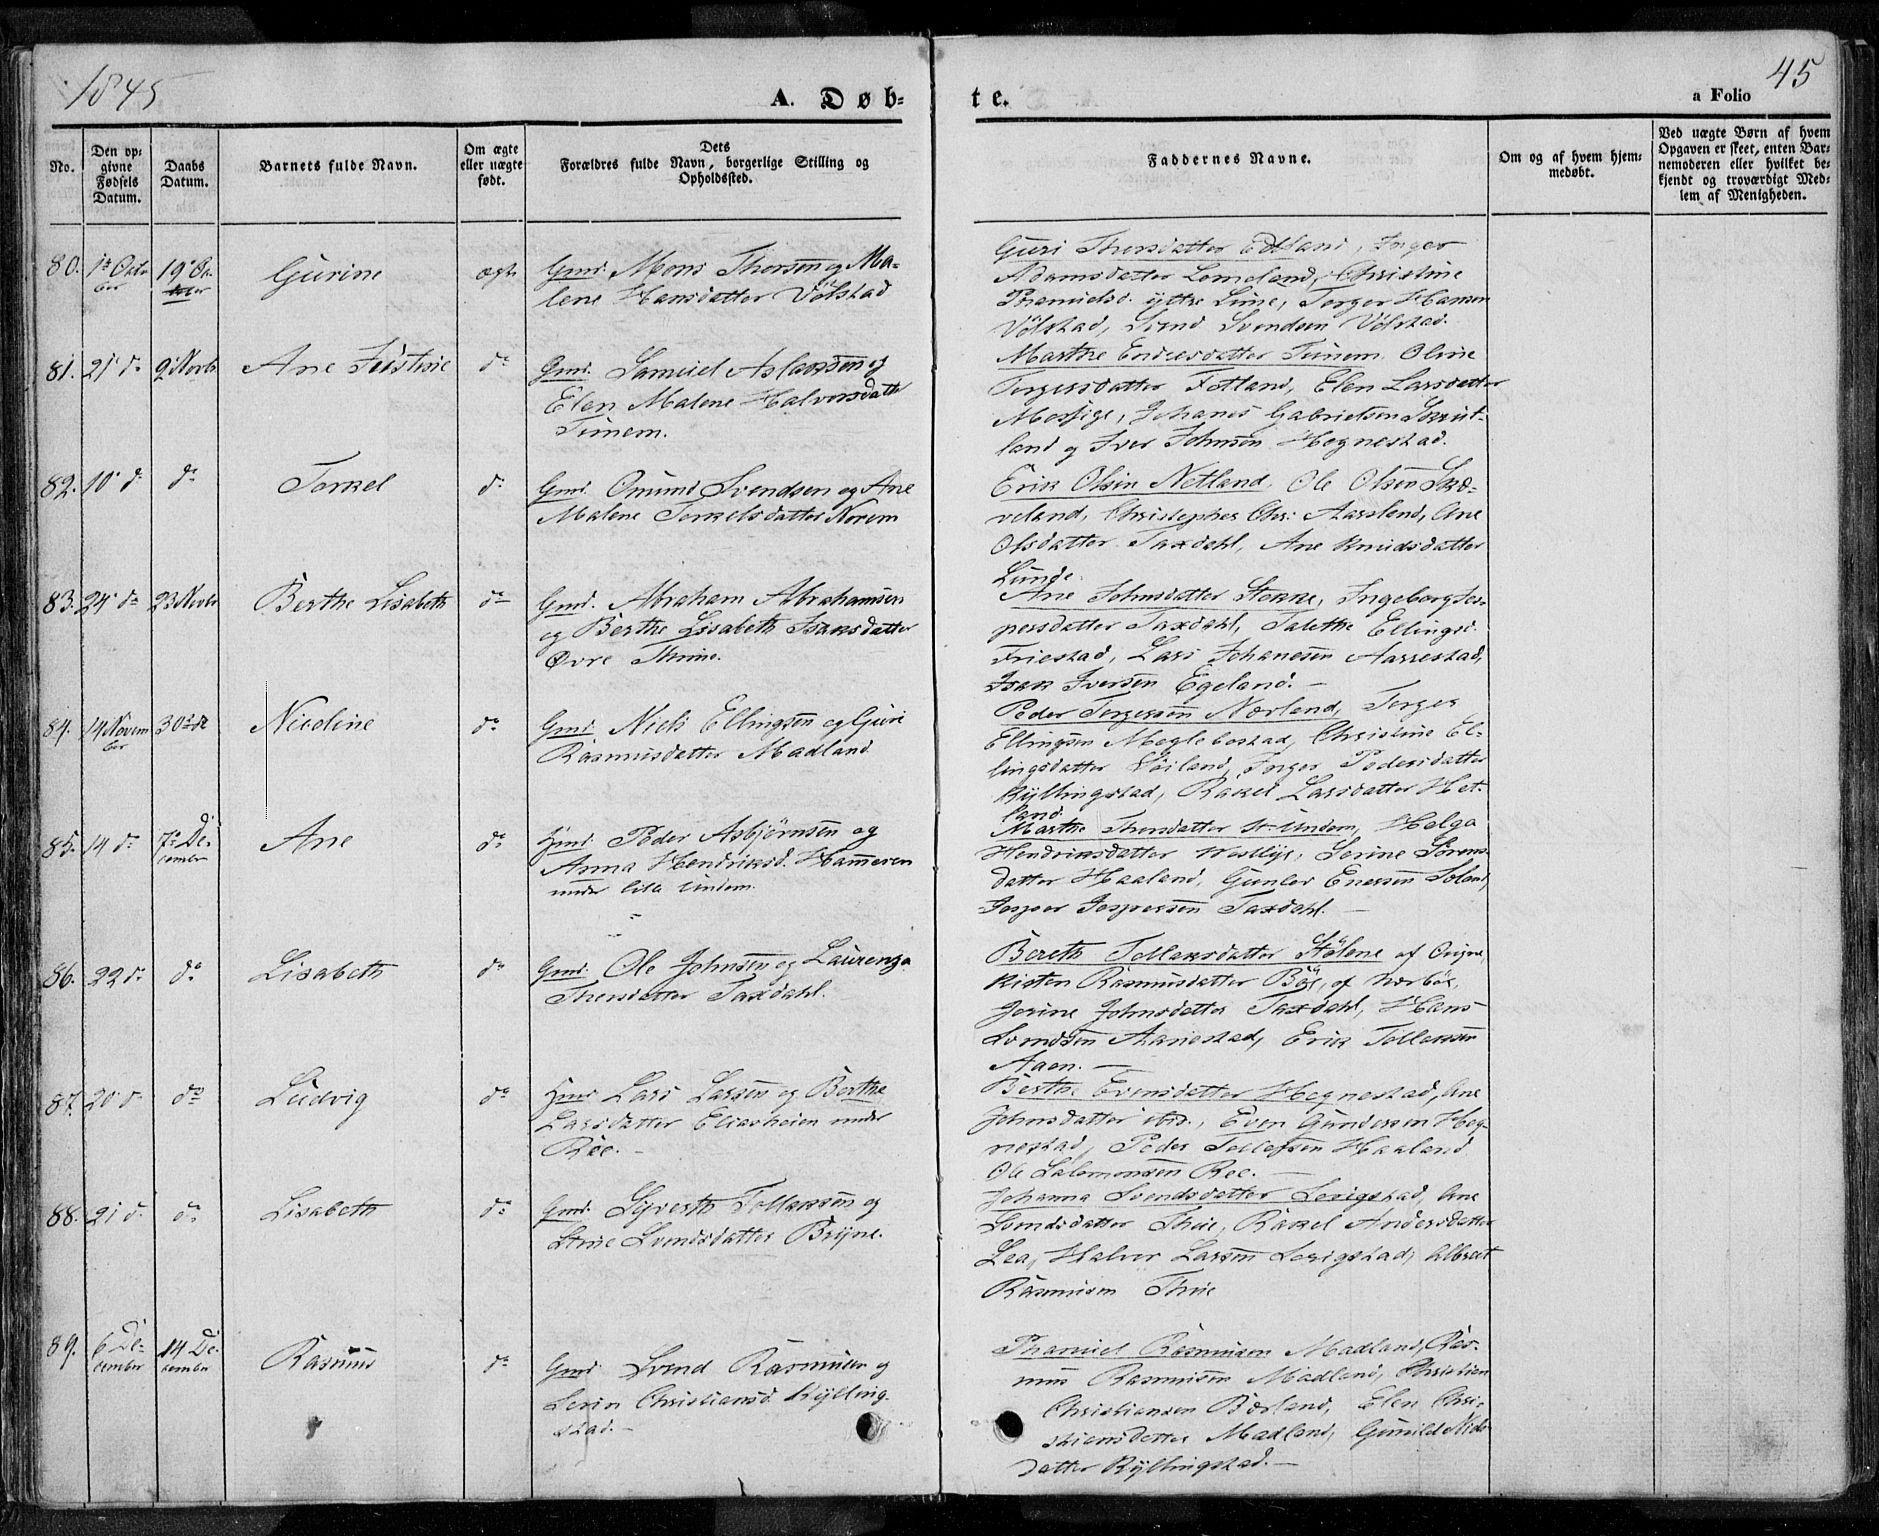 1845
A. Døb-
te.
a Folio 45
No.
Den op-
givne
Fødsels
Datum.
Daabs
Datum.
Barnets fulde Navn.
Om ægte
eller uægte
født.
Dets
Forældres fulde Navn, borgerlige Stilling og
Opholdssted.
Faddernes Navne.
Om og af hvem hjem-
medøbt.
Ved uægte Børn af hvem
Opgaven er skeet, enten Bar-
nemoderen eller hvilket be-
kjendt og troværdigt Med-
lem af Menigheden.
80.
19 Oc-
Gurine
ægte
Gmd. Mons Thorsen og Ma-
lene Hansdatter Vølstad
Guri Thorsdatter Edland, Inger
Adamsdatter Lomeland, Christine
Thamielsd. yttre Lime, Torger Hansen
Vølstad, Svend Svendsen Vølstad.
81. 21 do 9 Novbr
Ane
do
Gmd. Samuel Aslaksen og
Elen Malene Halvorsdatter
Tunem.
Marthe Endresdatter Tunem. Oline
Torgersdatter Fotland, Elen Larsdatter
Mossige, Johanes Gabrielsen Skrut-
land og Iver Johnsen Hognestad.
82. 10 do do
Torkel
do
Gmd. Omund Svendsen og Ane
Malene Torkelsdatter Norem
Erik Olsen Netland. Ole Olsen Skæ-
veland, Christopher Chr. Aarsland, Ane
Olsdatter Taxdahl, Ane Knudsdatter
Lunde.
83. 24 do 23 Novbr
Berthe Lisabeth
do
Gmd. Abraham Abrahamsen
og Berthe Lisabeth Isaksdatter
Øvre Thime.
Ane Johnsdatter Stokke, Ingeborg Jes-
persdatter Taxdahl, Talethe Ellingsd.
Friestad, Lars Johanesen Aarrestad,
Isak Iversen Egeland. —
84. 14 Novem
ber
30 do
Nicoline
do
Gmd. Niels Ellingsen og Guri
Rasmusdatter Madland
Peder Torgersen Nærland, Torger
Ellingsen Moglebostad, Christine El-
lingsdatter Søiland, Inger Pedersdatter
Kyllingstad, Rakel Larsdatter Het-
land.
85. 14 do 7 De-
cember
Ane
do
Hmd. Peder Asbjørnsen og
Anna Hendriksd. Hammeren
under lille Undem.
Marthe Thorsdatter St. Undem, Helga
Hendriksdatter Westlye, Serine Sørens-
datter Haaland, Gunler Enersen Soland,
Jesper Jespersen Taxdahl. —
86. 22 do do
Lisabeth
do
Gmd. Ole Johnsen og Laurenza
Thorsdatter Taxdahl.
Bereth Tollaksdatter Stølene af
Kisten Rasmusdatter Bøe, af Nærbøe,
Jorine Johnsdatter Taxdahl, Hans
Svendsen Aanestad, Erik Tollaksen
Aaen. —
87. 20 do do
Ludvig
do
Hmd Lars Larsen og Berthe
Larsdatter Eliasheien under
Roe. —
Berthe Evensdatter Hognestad, Ane
Johnsdatter ibid., Even Gundersen Hog-
nestad, Peder Tollefsen Haaland
Ole Salomonsen Roe. —
88. 21 do do
Lisabeth
do
Gmd. Syverth Tollaksen og
Stine Svendsdatter Bryne.
Johanna Svendsdatter Serigstad, Ane
Svendsdatter Thue, Rakel Andersdatter
Lea, Halvor Larsen Serigstad, Albrect
Rasmusen Thue
89. 6 De-
cember
14 De-
cember
Rasmus
do
Gmd. Svend Rasmusen og
Serin Christiansd. Kylling-
stad. —
Thamiel Rasmusen Madland, Ras-
mus Rasmusen Madland, Christian
Christiansen Børland, Elen Chri-
stiansdatter Madland, Gunild Niels-
datter Kyllingstad. —